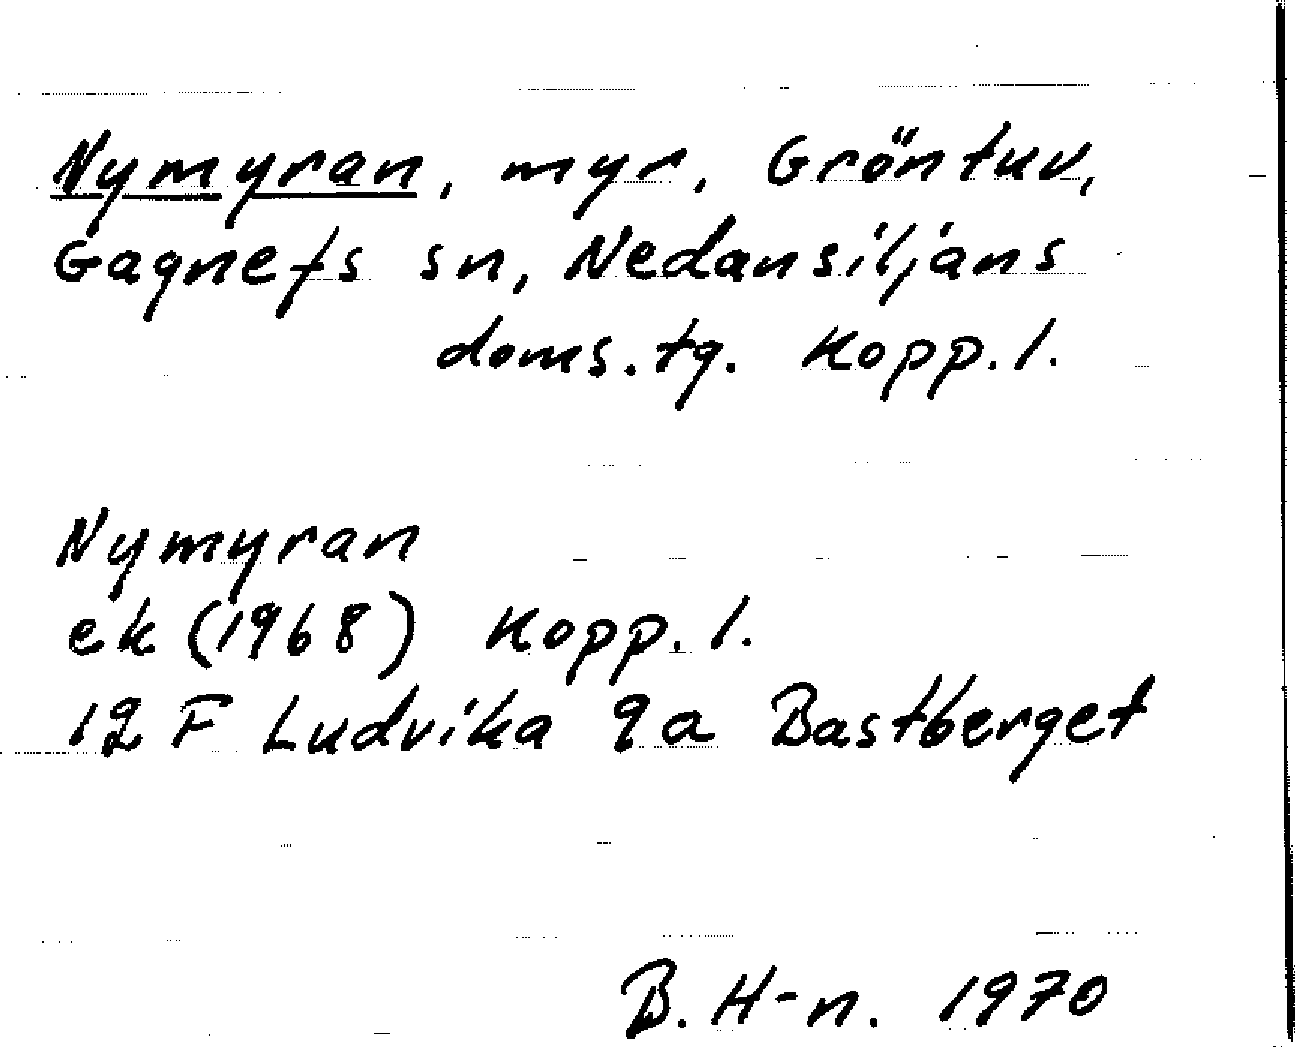 Nymyran, myr, Gröntuv,
Gagnefs sn, Nedansiljans
doms.tg. Kopp.l.
Nymyran
ek (1968) Kopp.l.
12 F Ludvika 9a Bastberget
B. H-n. 1970